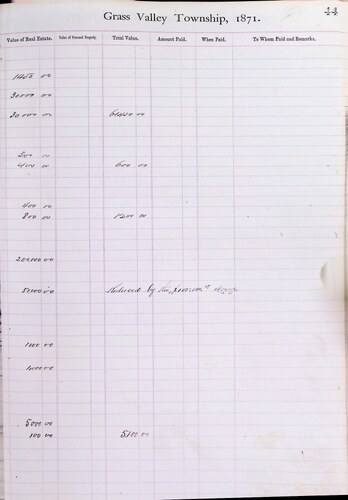 Grass Valley Township, 1871.
44
Value of Real Estate. Value of Personal Property. Total Value. Amount Paid. When Paid. To Whom Paid and Remarks.
1450 00
30000 00
30.000 00 61450 00
200 00
400 00 600 00
400 00
800 00 1200 00
200000 00
50000 00 Reduced by the
1000 00
5000 00
100 00 5100 00